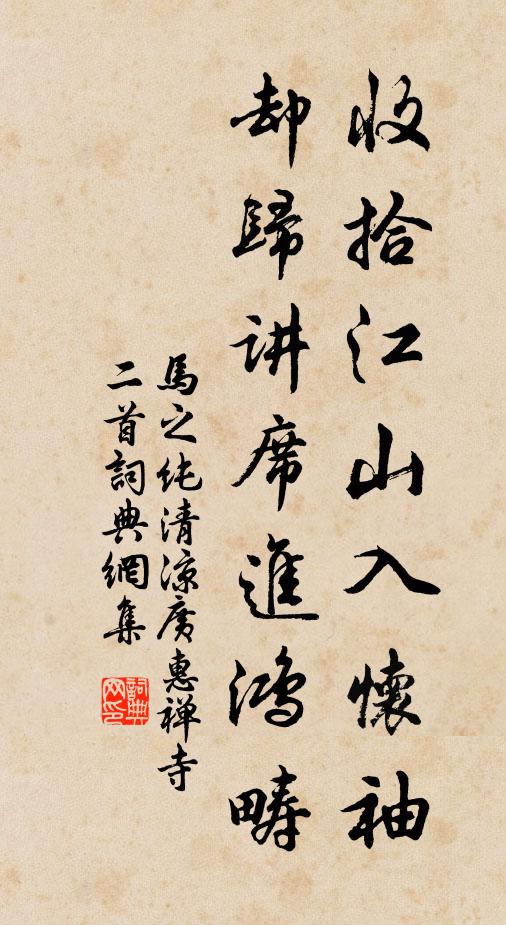 收拾江山入懷袖
却歸讲席進鴻疇
馬之純清凉廣惠禅寺
二首詞典網集
詞典网印